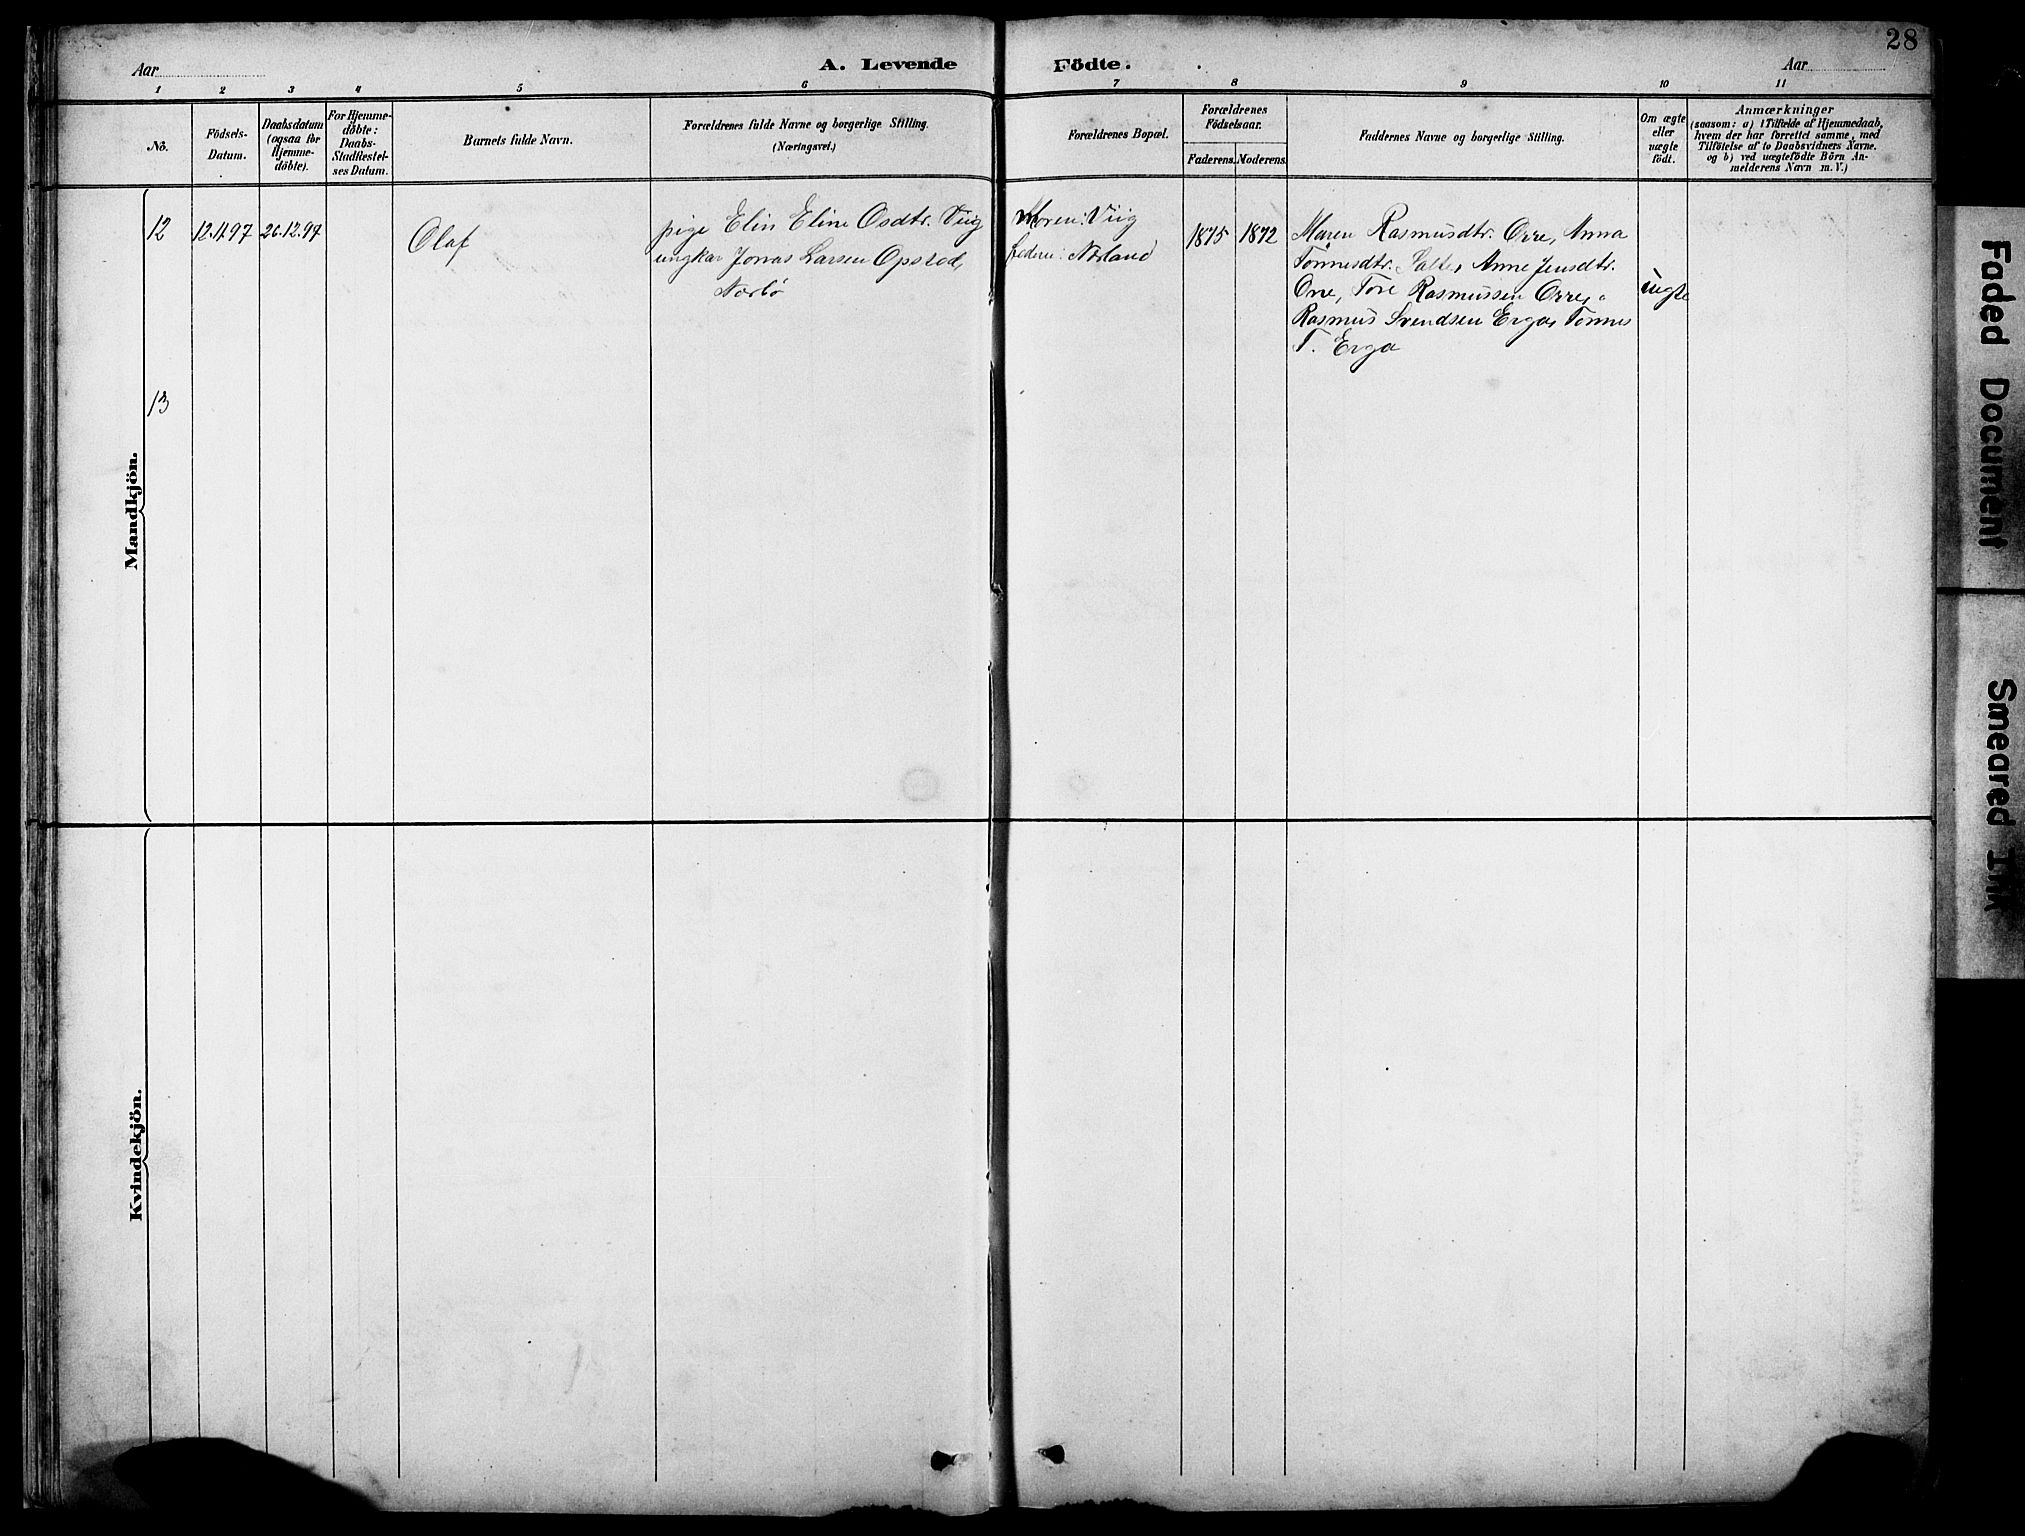 28
Aar
A. Levende Födte.
Aar
1 2 3 4 5 6 7 8 9 10 11
No.
Födsels-
Datum.
Daabsdatum
(ogsaa for
Hjemme-
døbte).
For Hjemme-
døbte:
Daabs-
Stadfæstel-
ses Datum.
Barnets fulde Navn.
Forældrenes fulde Navne og borgerlige Stilling.
(Næringsvei.)
Forældrenes Bopæl.
Forældrenes
Födselsaar.
Faderens. Moderens.
Faddernes Navne og borgerlige Stilling.
Om ægte
eller
uægte
født.
Anmærkninger
(saasom: a) i Tilfælde af Hjemmedaab,
hvem der har forrettet samme, med
Tilføielse af to Daabsvidners Navne.
og b) ved uægtefødte Børn An-
melderens Navn m. V.)
Mandkjön.
12
12.11.97
26.12.97
Olaf
pige Elin Eline Osdtr. Viig
ungkar Jonas Larsen Opstad,
Nærbø
Moren: Viig
faderen: Nærland
1875
1872
Maren Rasmusdtr. Orre, Anna
Tønnesdtr. Salte, Anne Jensdtr.
Orre, Tore Rasmussen Orre,
Rasmus Svendsen Erga, Tønnes
T. Erga
uægte
13
Kvindekjön.
Faded Document
Smeared Ink